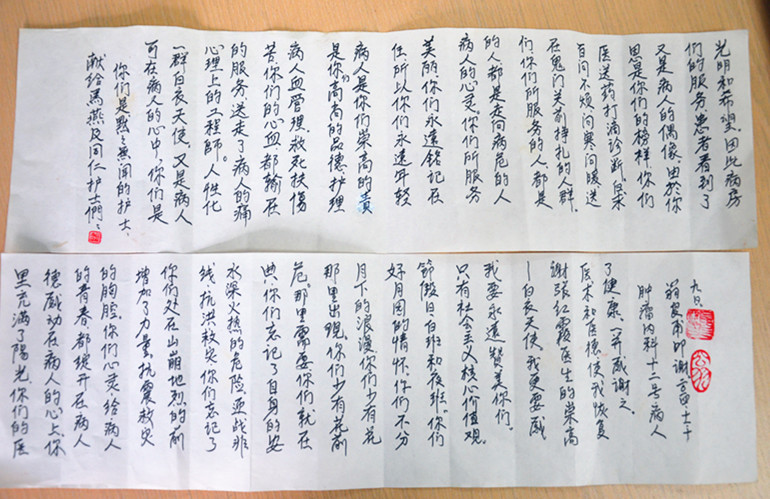 献给馬燕及同仁护士們:
你们是默默無闻的护士、
可在病人的心中,你们是
一群白衣天使,又是病人
心理上的工程師。人性化
的服务送走了病人的痛
苦,你们的心血都输在
病人血管裡,救死扶傷
是你们高高的品德,护理
病人是你们崇高的责
任,所以你们永遠年轻
美丽,你们永遠铭记在
病人的心灵,你们所服务
的人都是走向病危的人
们,你们所服务的人都是
在鬼门关前挣扎的人群.
百问不烦问寒问暖送
医送药打滴診断
思是你们的榜样,你们
又是病人的偶像,由於你
们的服务,患者看到了
光明和希望,因此病房
里充满了陽光,你们的医
德感动在病人的心上,你
的青春,都绽开在病人
的胸腔,你们心灵,给病人
增加了力量,抗震救灾
你们处在山崩地烈的前
线,抗洪救灾你们忘记了
水深火热的危险,亚战非
典,你们忘记了自身的安
危,那里需要你们就在
那里出现,你们少有花前
月下的浪漫你们少有花
好月园的情怀,你们不分
節假日白班和夜班,你们
只有社会主义核心价值观.
我要永遠赞美你们,
—白衣天使,我更要感
谢张红霞医生的荣高
医术和医德使我恢复
了健康,一并感谢之.
肿瘤内科十二号病人
叩谢
九日.